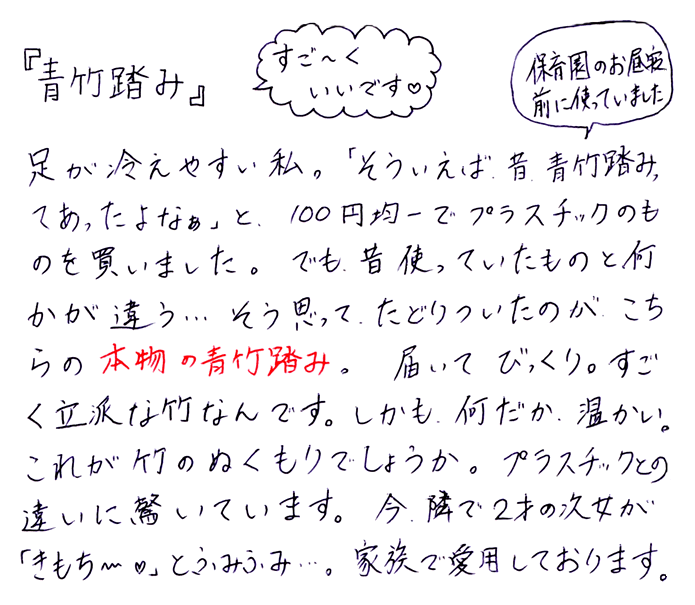 『青竹踏み』
すご〜く
いいです♡
保育園のお昼寝
前に使っていました
足が冷えやすい私。「そういえば、昔、青竹踏み、
てあったよなぁ」と、100円均一でプラスチックのも
のを買いました。でも、昔使っていたものと、何
かが違う…そう思って、たどりついたのが、こち
らの本物の青竹踏み。届いてびっくり。すご
く立派な竹なんです。しかも、何だか、温かい。
これが竹のぬくもりでしょうか。プラスチックとの
違いに驚いています。今、隣で2才の次女が
「きもち〜♡」とふみふみ…。家族で愛用しております。